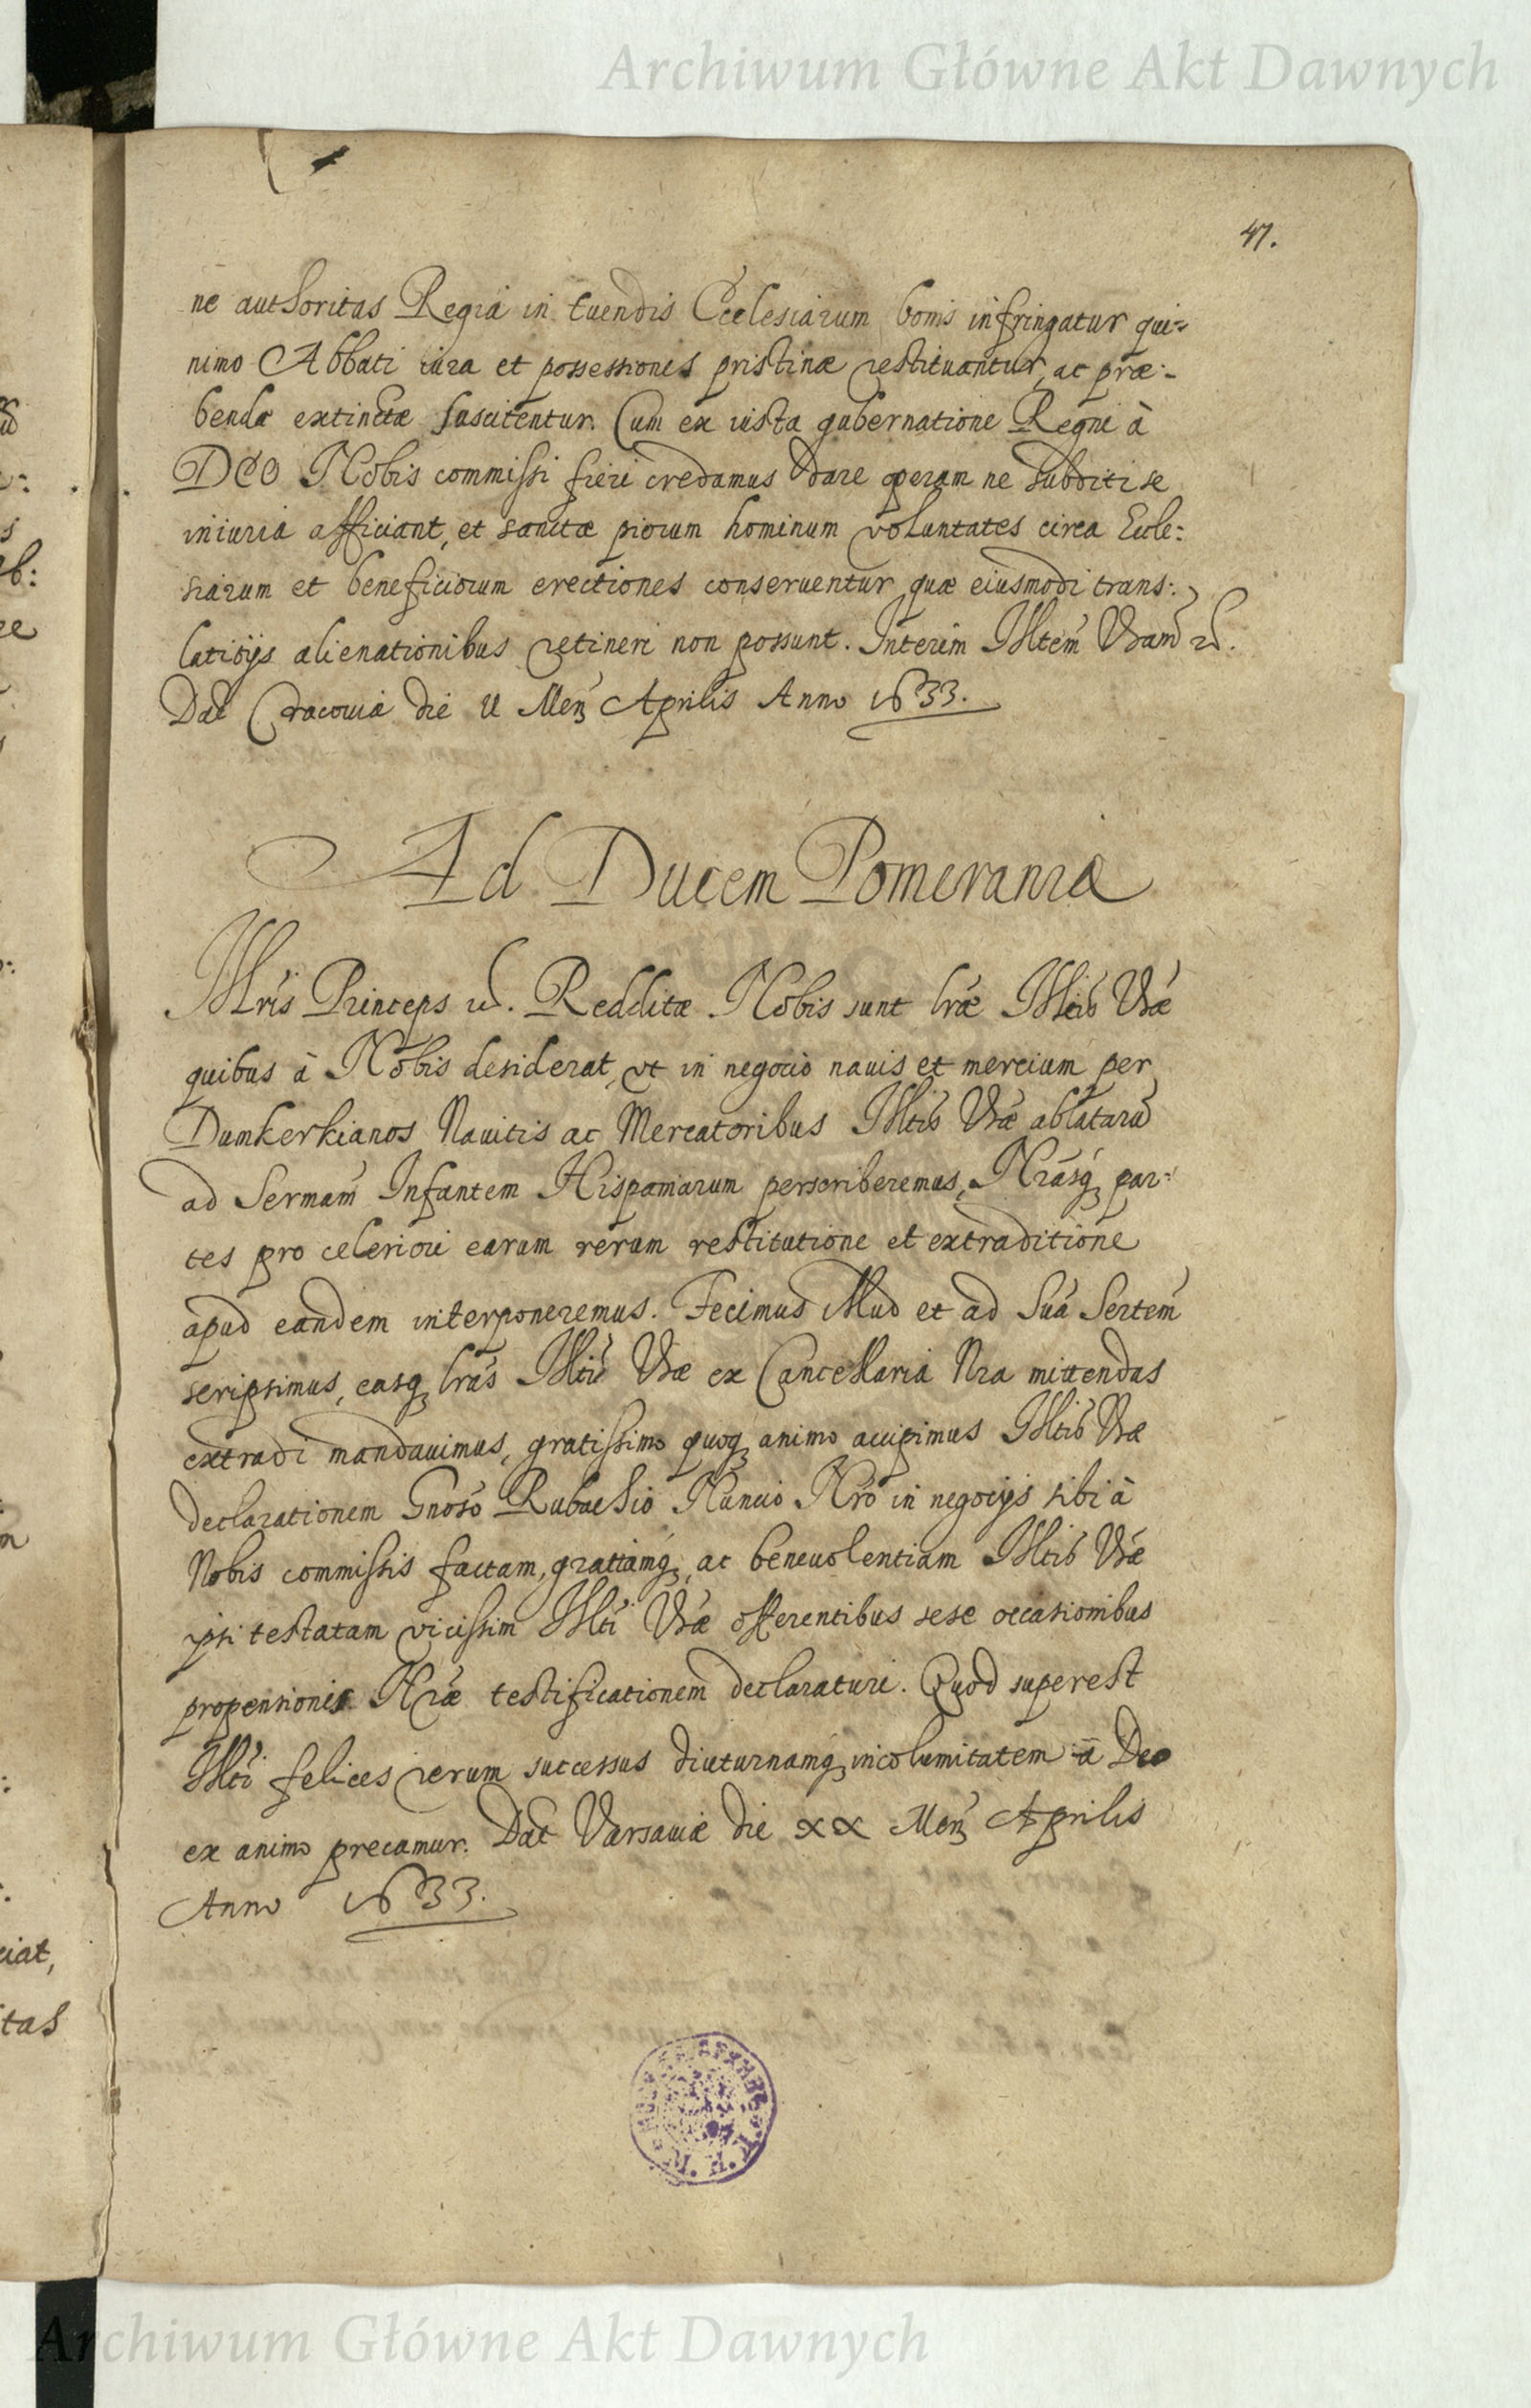 Archiwum Główne Akt Dawnych
47.
ne authoritas Regia in tuendis Ecclesiarum bonis infringatur qui=
nimo Abbati iura et possessiones pristinæ restituantur, ac præ:
bendæ extinctæ suscitentur. Cum ex iusta gubernatione Regni à
DEO Nobis commissi fieri credamus dare operam ne subditi se
iniuria afficiant, et sanctæ piorum hominum voluntates circa Eccle:
siarum et beneficiorum erectiones conseruentur quæ eiusmodi trans:
latitijs alienationibus retineri non possunt. Interim Illtem Vram
Dat Cracouiæ die Mens Aprilis Anno 1633.
Ad Ducem Pomeraniæ
Illris Princeps Redditæ Nobis sunt lræ Illtis Vræ
quibus à Nobis desiderat, vt in negocio nauis et mercium per
Dumkerkianos Nauitis ac Mercatoribus Illtis Vræ ablatarũ
ad Sermam Infantem Hispaniarum perscriberemus, Nrasq par:
tes pro celeriori earum rerum restitutione et extraditione
apud eandem interponeremus. Fecimus illud et ad Suã Sertem
scripsimus, easq lras Illti Vræ ex Cancellaria Nra mittendas
extradi mandauimus, gratissimo quoq animo accipimus Illtis Vræ
declarationem Gnoso Nuncio Nro in negocijs sibi à
Nobis commissis factam, gratiamq, ac beneuolentiam Illtis Vræ
ipsi testatam vicissim Illti Vræ offerentibus sese occasionibus
propensionis Nræ testificationem declaraturi. Quod superest
Illti felices rerum successus diuturnamq incolumitatem à Deo
ex animo precamur. Dat Varsauiæ die XX Mens Aprilis
Anno 1633.
Archiwum Główne Akt Dawnych